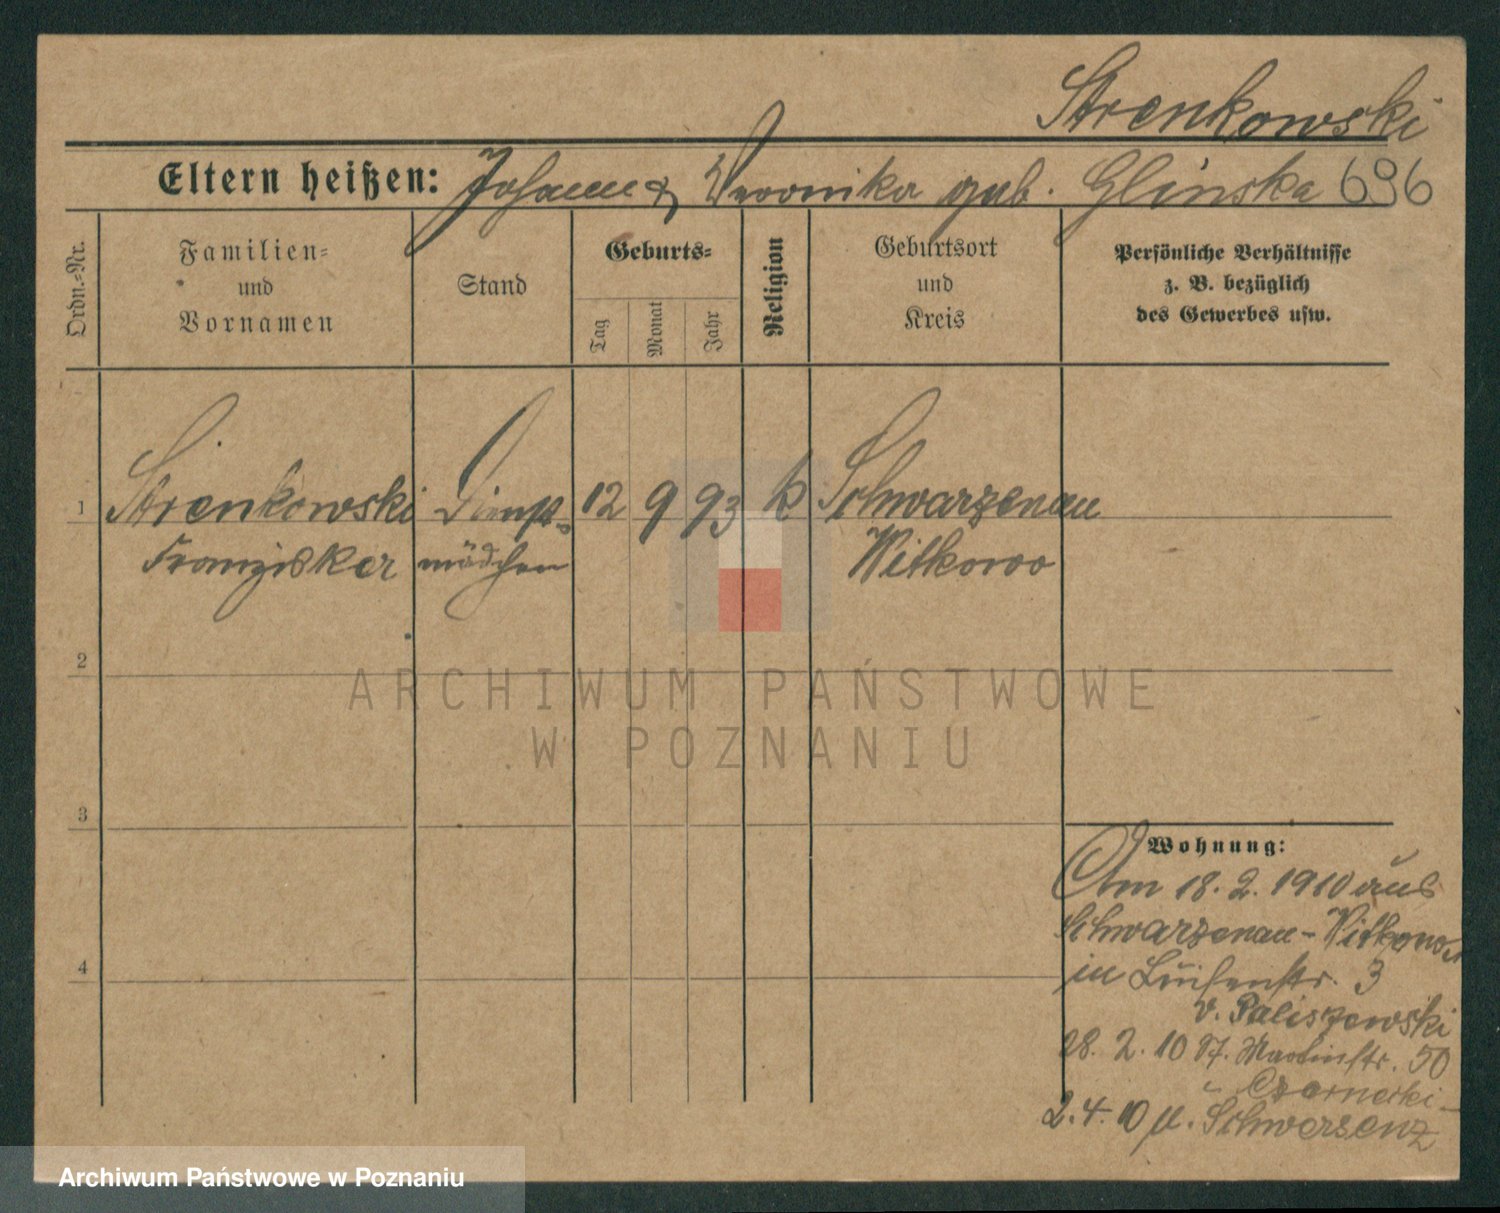 Strenkowski
Eltern heißen: Johann & Veronika geb. Glinska 696
Ordn.=Nr.
Familien=
und
Vornamen
Stand
Geburts=
Tag
Monat
Jahr
Religion
Geburtsort
und
Kreis
Persönliche Verhältnisse
z. B. bezüglich
des Gewerbes usw.
1 Strenkowski 12 9 93 k Schwarzenau
Franziska mädchen Witkowo
2
ARCHIWUM PAŃSTWOWE
W POZNANIU
3
Wohnung:
Am 18.2.1910 aus
Schwarzenau-Witkowo
4
in Luisenstr. 3
v. Paliszewski
28.2.10 St. Martinstr. 50
Czarnecki
2.4.10 n. Schwersenz
Archiwum Państwowe w Poznaniu